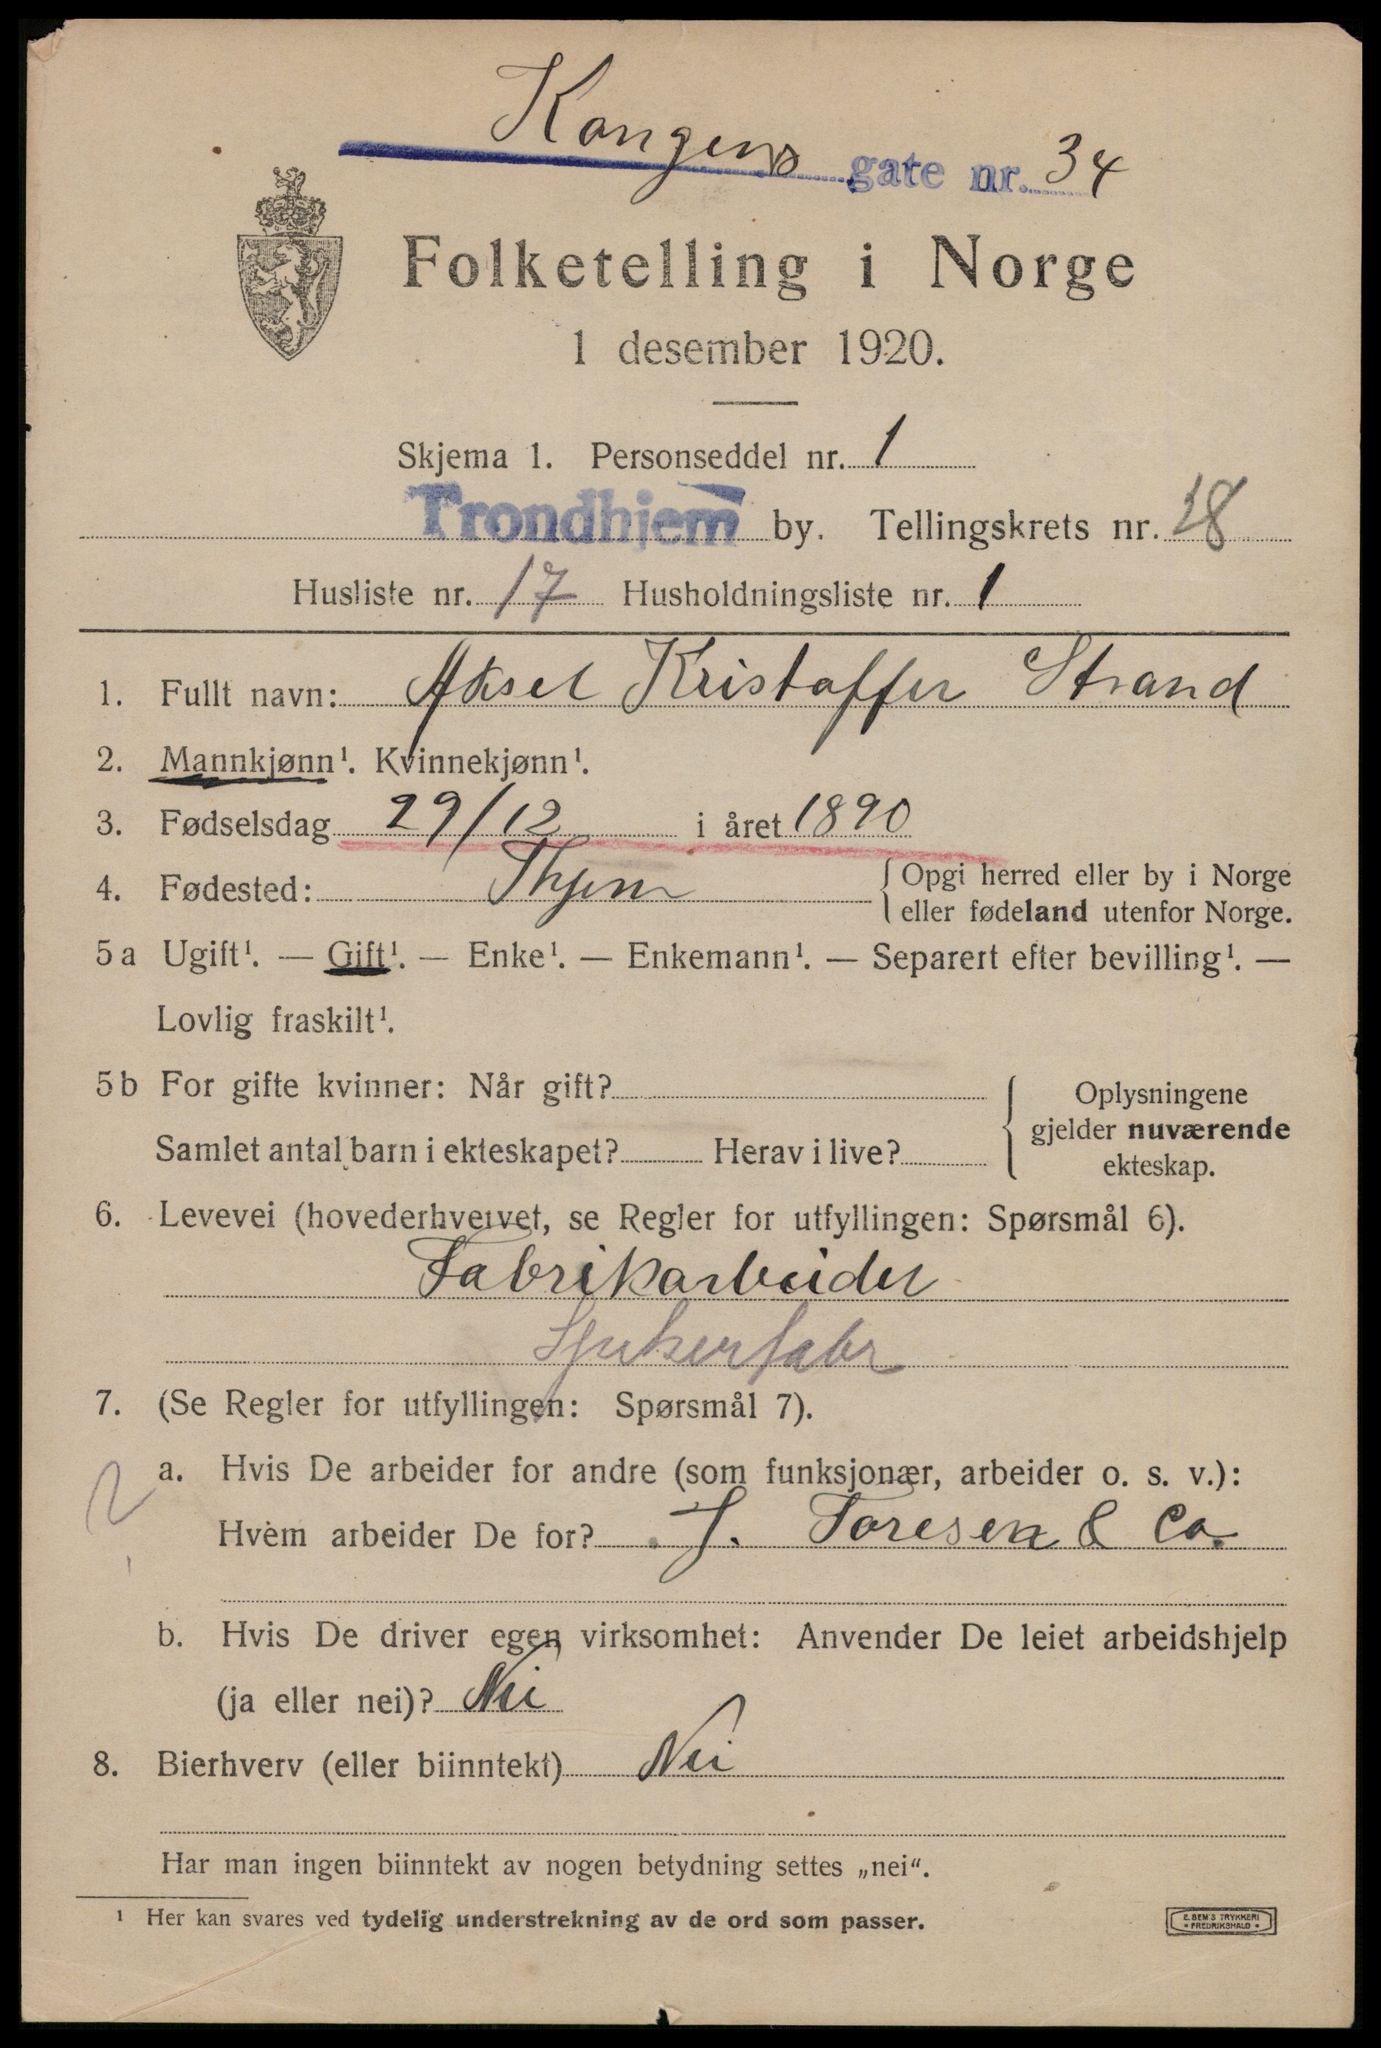 Kongens gate nr. 34
Folketelling i Norge
1 desember 1920.
Skjema 1. Personseddel nr. 1
Trondhjem by. Tellingskrets nr. 18
Husliste nr. 17 Husholdningsliste nr. 1
1. Fullt navn: Aksel Kristoffer Strand
2. Mannkjønn¹. Kvinnekjønn¹.
3. Fødselsdag 29/12 i året 1890
4. Fødested: Thjem { Opgi herred eller by i Norge
eller fødeland utenfor Norge.
5a Ugift¹. — Gift¹. — Enke¹. — Enkemann¹. — Separert efter bevilling¹. —
Lovlig fraskilt¹.
5b For gifte kvinner: Når gift?
Samlet antal barn i ekteskapet? Herav i live?
{ Oplysningene
gjelder nuværende
ekteskap.
6. Levevei (hovederhvervet, se Regler for utfyllingen: Spørsmål 6).
Fabrikarbeider
7. (Se Regler for utfyllingen: Spørsmål 7).
a. Hvis De arbeider for andre (som funksjonær, arbeider o. s. v.):
Hvem arbeider De for? J. Toresen & Co.
b. Hvis De driver egen virksomhet: Anvender De leiet arbeidshjelp
(ja eller nei)? Nei
8. Bierhverv (eller biinntekt) Nei
Har man ingen biinntekt av nogen betydning settes „nei“.
¹ Her kan svares ved tydelig understrekning av de ord som passer.
E. SEM'S TRYKKERI
• FREDRIKSHALD •